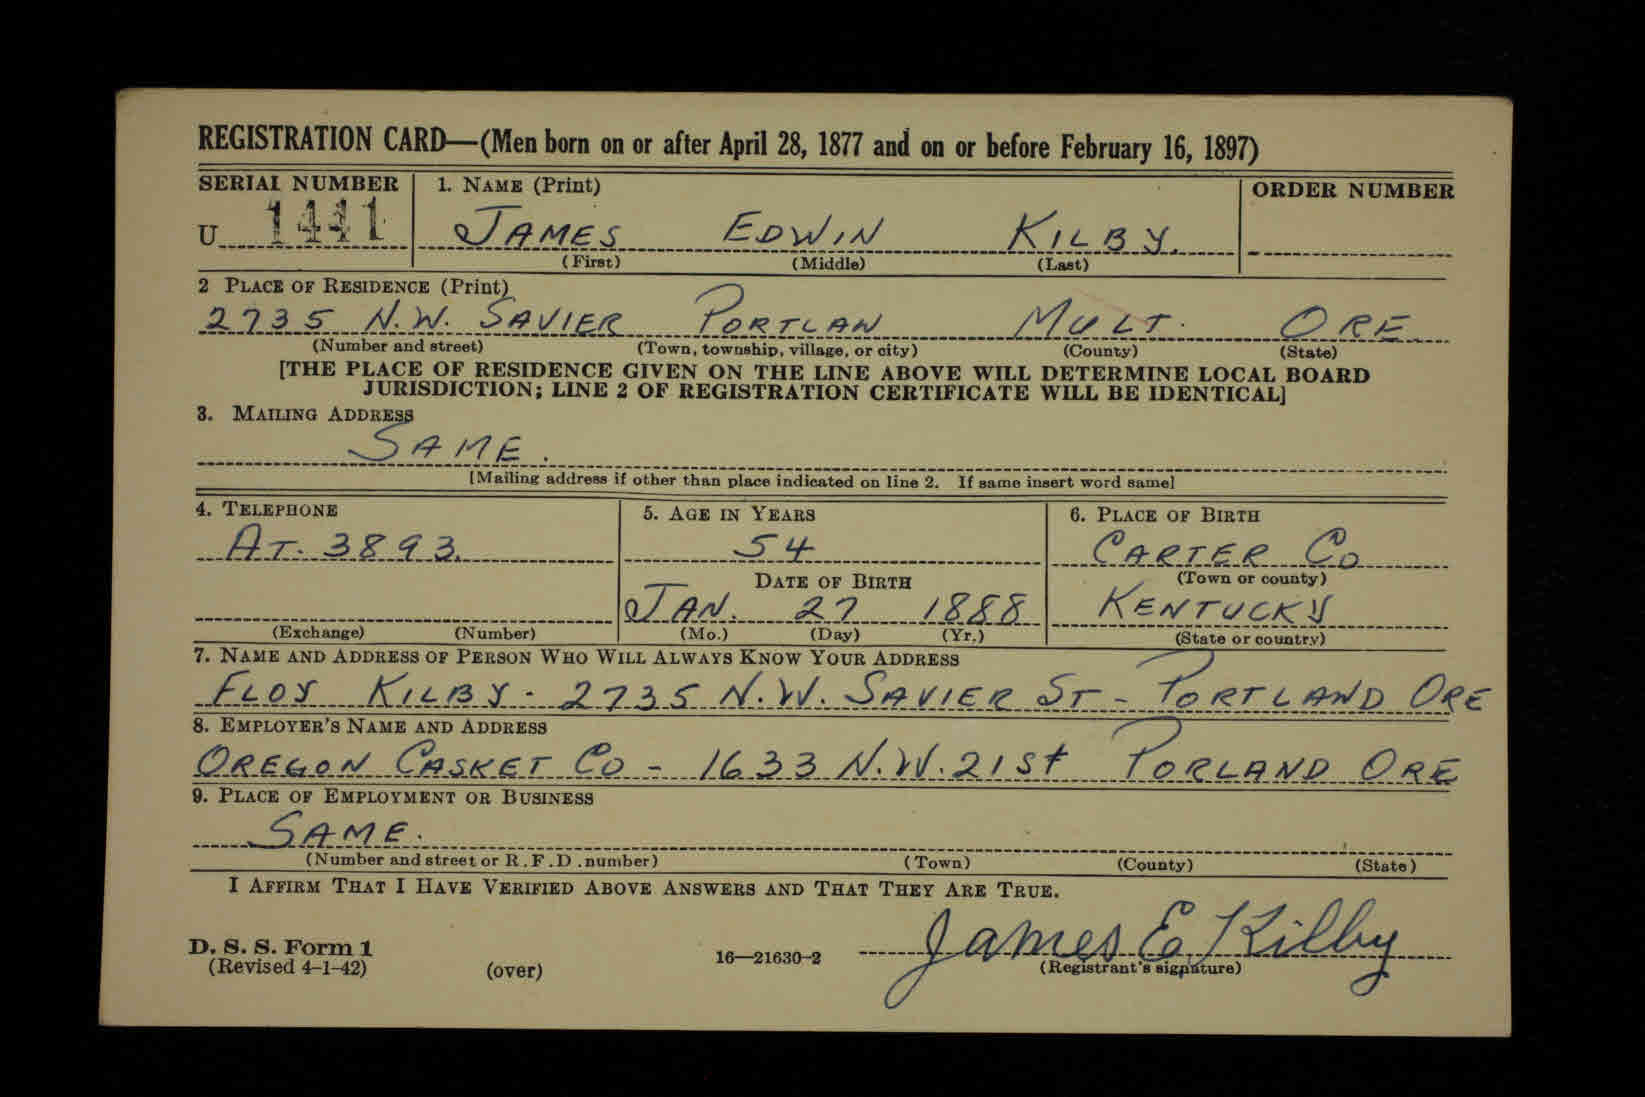 REGISTRATION CARD—(Men born on or after April 28, 1877 and on or before February 16, 1897)
SERIAL NUMBER 1. NAME (Print) ORDER NUMBER
U 1441 JAMES EDWIN KILBY.
(First) (Middle) (Last)
2 PLACE OF RESIDENCE (Print)
2735 N.W. SAVIER PORTLAN MULT. ORE.
(Number and street) (Town, township, village, or city) (County) (State)
[THE PLACE OF RESIDENCE GIVEN ON THE LINE ABOVE WILL DETERMINE LOCAL BOARD
JURISDICTION; LINE 2 OF REGISTRATION CERTIFICATE WILL BE IDENTICAL]
3. MAILING ADDRESS
SAME.
[Mailing address if other than place indicated on line 2. If same insert word same]
4. TELEPHONE 5. AGE IN YEARS 6. PLACE OF BIRTH
AT. 3893. 54 CARTER CO
DATE OF BIRTH (Town or county)
JAN. 27 1888 KENTUCKY
(Exchange) (Number) (Mo.) (Day) (Yr.) (State or country)
7. NAME AND ADDRESS OF PERSON WHO WILL ALWAYS KNOW YOUR ADDRESS
FLOY KILBY - 2735 N.W. SAVIER ST - PORTLAND ORE
8. EMPLOYER'S NAME AND ADDRESS
OREGON CASKET CO - 1633 N.W. 21st PORLAND ORE
9. PLACE OF EMPLOYMENT OR BUSINESS
SAME.
(Number and street or R.F.D. number) (Town) (County) (State)
I AFFIRM THAT I HAVE VERIFIED ABOVE ANSWERS AND THAT THEY ARE TRUE.
D. S. S. Form 1 James E. Kilby
(Revised 4-1-42) (over) 16—21630-2 (Registrant's signature)